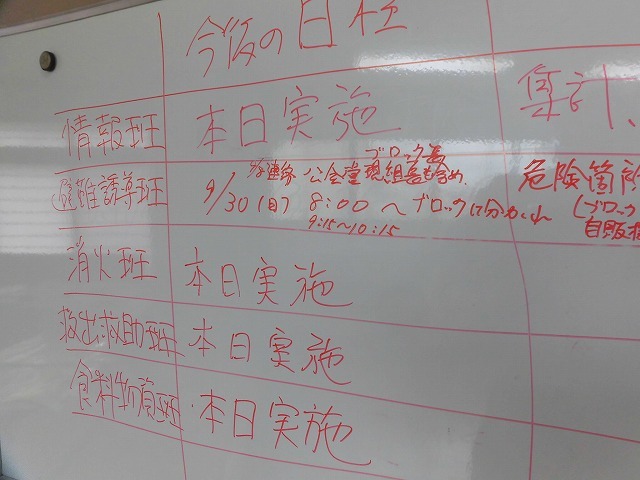 今後の日程
情報班 本日実施 集計、
ブロック長
連絡 公会堂 現組長も含め、
避難誘導班 9/30(日) 8:00 〜ブロックに分かれ 危険箇所
9:15〜10:15 (ブロック
自販
消火班 本日実施
救出救助班 本日実施
食料物資班 本日実施